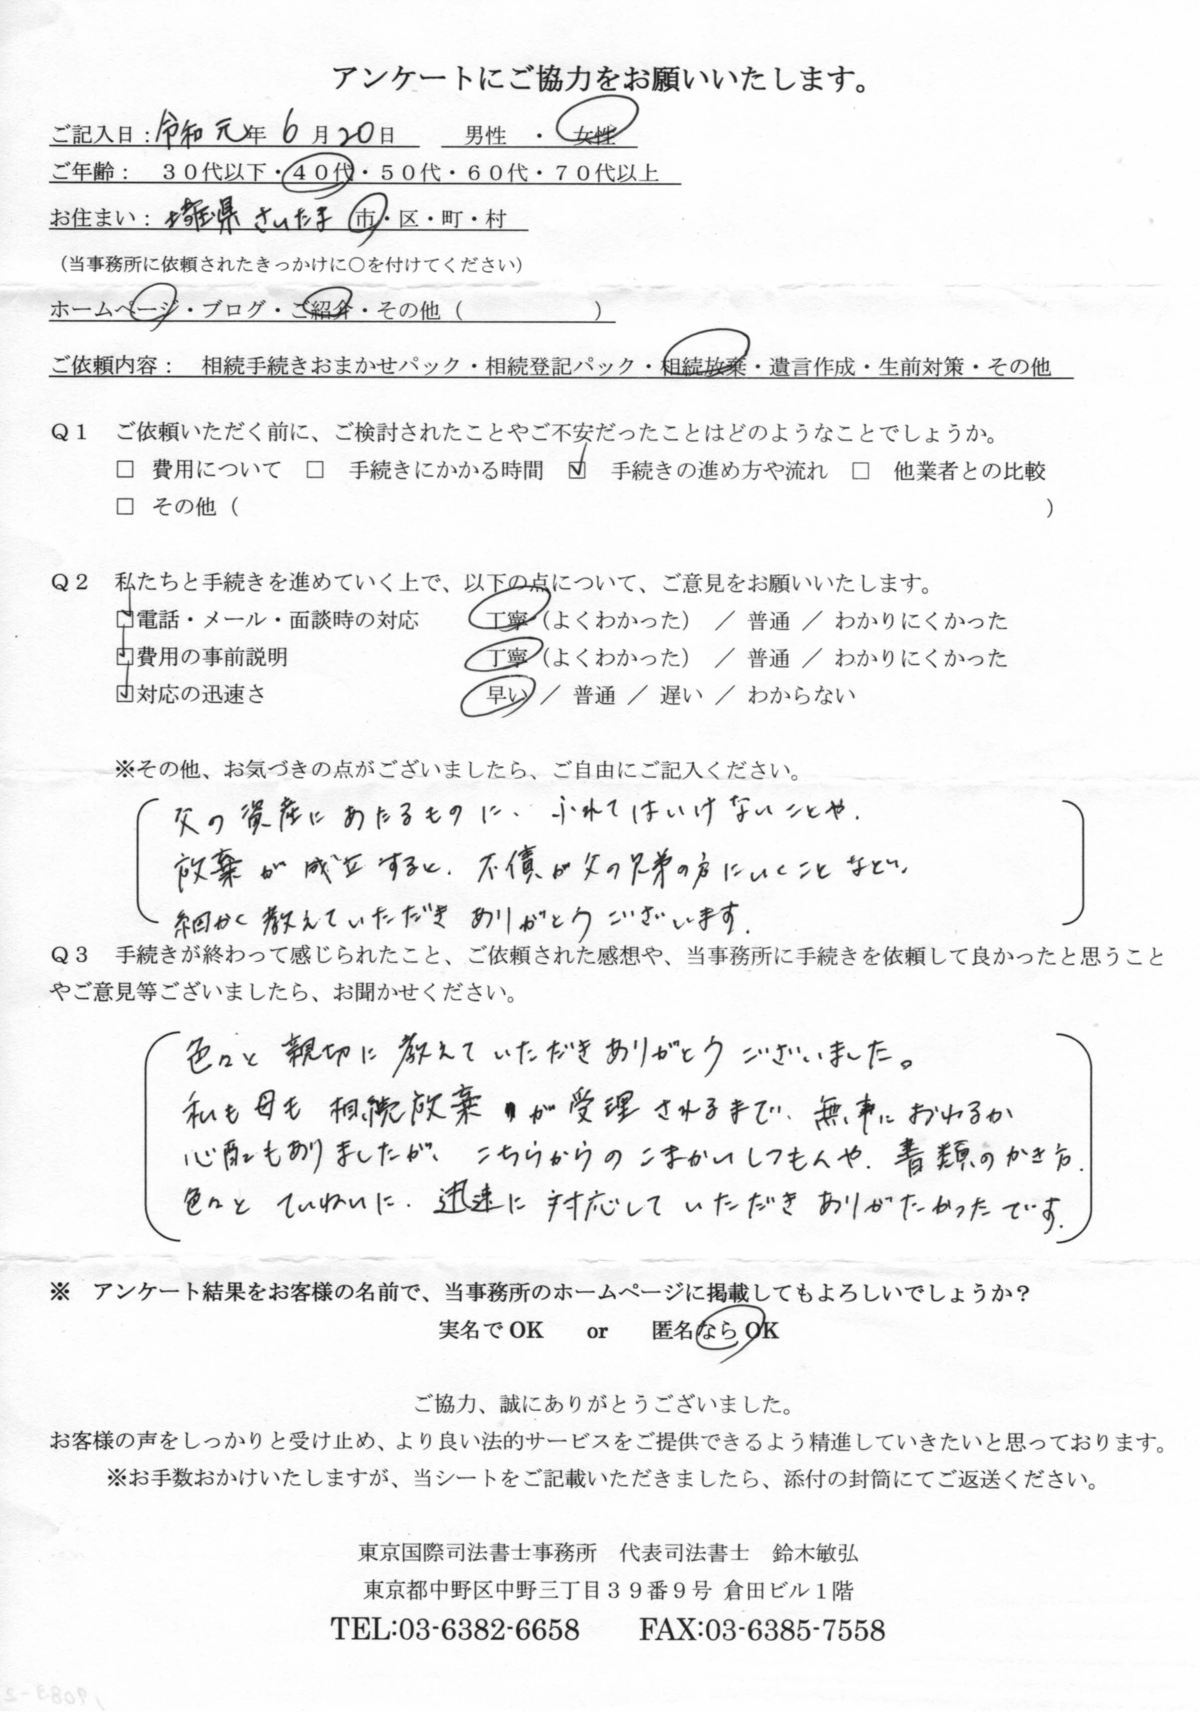 アンケートにご協力をお願いいたします。
ご記入日：令和元年 6月20日　男性　・　女性
ご年齢：　３０代以下・４０代・５０代・６０代・７０代以上
お住まい：埼玉県 さいたま 市・区・町・村
（当事務所に依頼されたきっかけに○を付けてください）
ホームページ・ブログ・ご紹介・その他（　　　　　　）
ご依頼内容：　相続手続きおまかせパック・相続登記パック・相続放棄・遺言作成・生前対策・その他
Ｑ１　ご依頼いただく前に、ご検討されたことやご不安だったことはどのようなことでしょうか。
□ 費用について　□　手続きにかかる時間　☑　手続きの進め方や流れ　□　他業者との比較
□ その他（　　　　　　　　　　　　　　　　　　　　）
Ｑ２　私たちと手続きを進めていく上で、以下の点について、ご意見をお願いいたします。
☑電話・メール・面談時の対応　　丁寧（よくわかった） ／ 普通 ／ わかりにくかった
☑費用の事前説明　　丁寧（よくわかった） ／ 普通 ／ わかりにくかった
☑対応の迅速さ　　早い ／ 普通 ／ 遅い ／ わからない
※その他、お気づきの点がございましたら、ご自由にご記入ください。
父の資産にあたるものに、ふれてはいけないことや、
放棄が成立すると、不債が父の兄弟の方にいくことなど、
細かく教えていただきありがとうございます。
Ｑ３　手続きが終わって感じられたこと、ご依頼された感想や、当事務所に手続きを依頼して良かったと思うこと
やご意見等ございましたら、お聞かせください。
色々と親切に教えていただきありがとうございました。
私も母も相続放棄が受理されるまで、無事におわるか
心配もありましたが、こちらからのこまかいしつもんや、書類のかき方、
色々とていねいに、迅速に対応していただきありがたかったです。
※　アンケート結果をお客様の名前で、当事務所のホームページに掲載してもよろしいでしょうか？
実名でOK　　or　　匿名ならOK
ご協力、誠にありがとうございました。
お客様の声をしっかりと受け止め、より良い法的サービスをご提供できるよう精進していきたいと思っております。
※お手数おかけいたしますが、当シートをご記載いただきましたら、添付の封筒にてご返送ください。
東京国際司法書士事務所　代表司法書士　鈴木敏弘
東京都中野区中野三丁目３９番９号 倉田ビル１階
TEL:03-6382-6658　　FAX:03-6385-7558